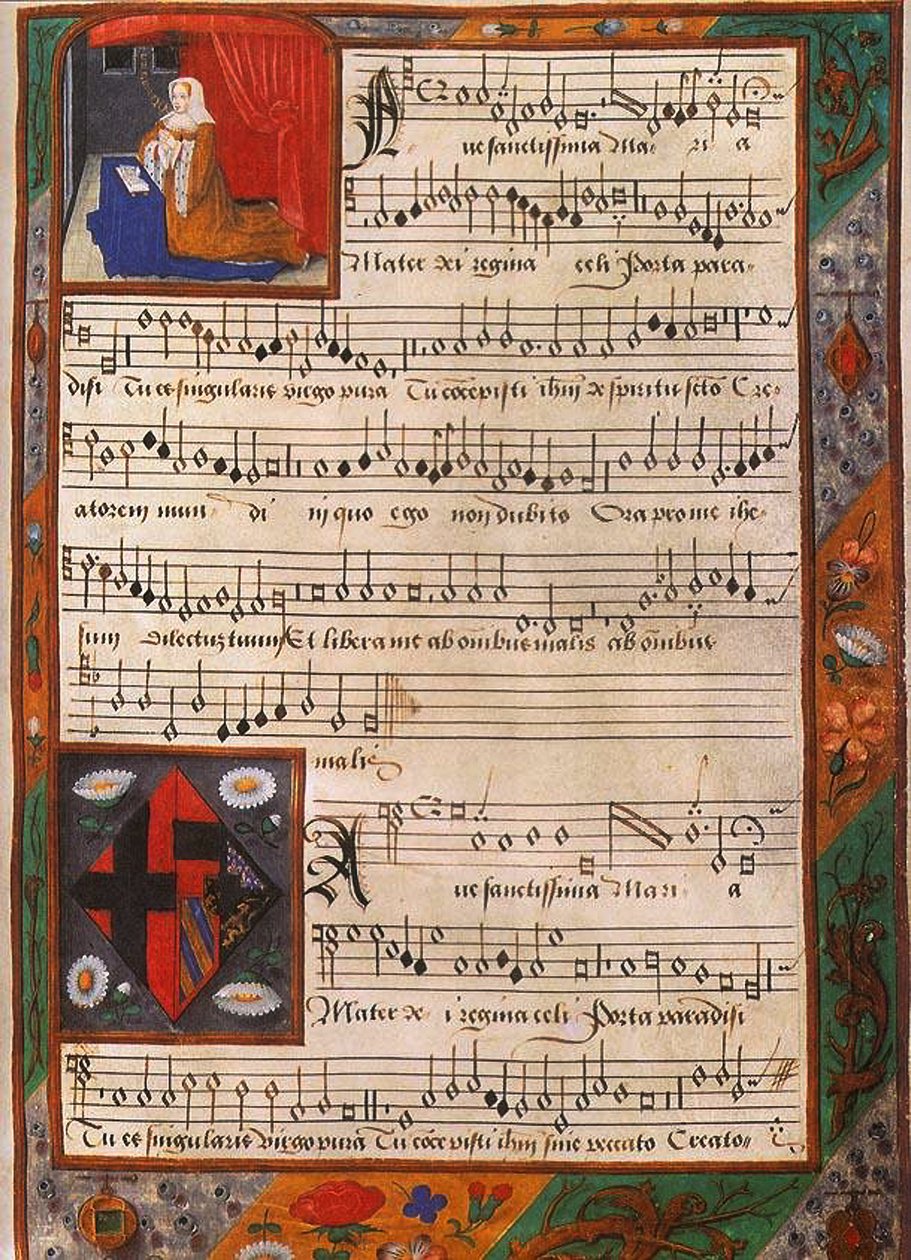 Aue sanctissima Maria
Mater dei regina celi Porta para-
disi Tu es singularis virgo pura Tu cōcepisti ihm̄ de spiritu sctō Cre-
atorem mundi in quo ego non dubito Ora pro me ihe-
sum dilectum tuum Et libera me ab omībus malis ab omībus
malis
Aue sanctissima Maria
Mater dei regina celi Porta paradisi
Tu es singularis virgo pura Tu cōcepisti ihm̄ sine peccato Creato